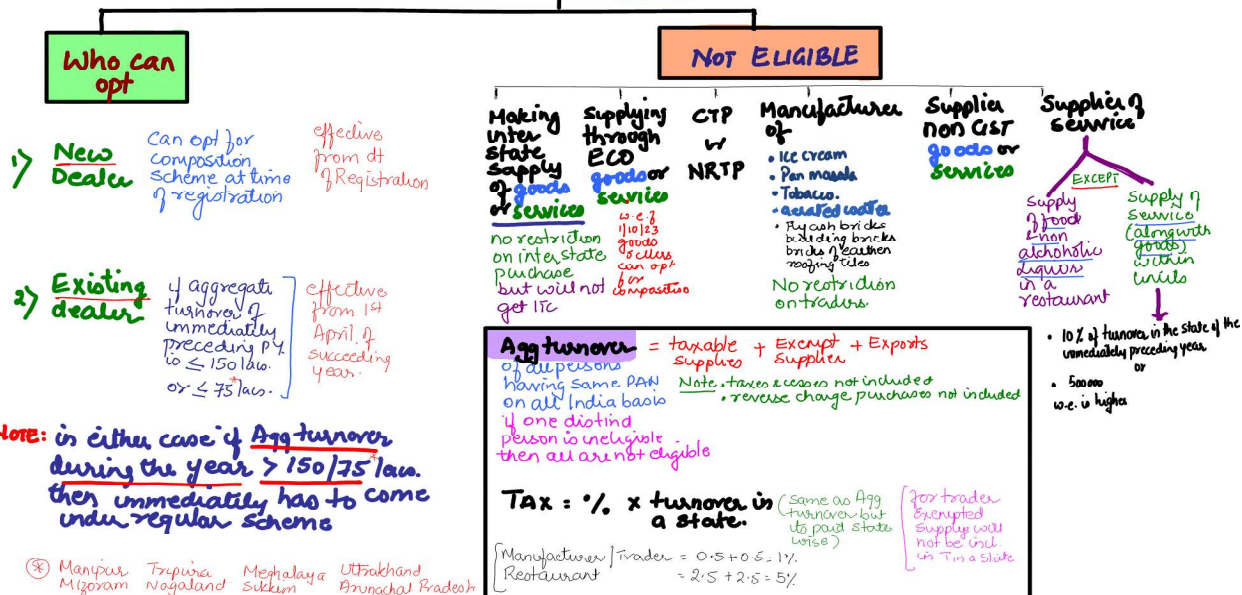 Who can
opt
NOT ELIGIBLE
1) New
Dealer
Can opt for
composition
scheme at time
of registration
effective
from dt
of Registration
2) Existing
dealer
if aggregate
turnover of
immediately
preceding P.Y
is ≤ 150 lacs.
or ≤ 75* lacs.
effective
from 1st
April of
succeeding
year.
NOTE: in either case if Agg turnover
during the year > 150/75* lacs.
then immediately has to come
under regular scheme
* Manipur Tripura Meghalaya Uttrakhand
Mizoram Nagaland Sikkim Arunachal Pradesh
Making
inter
state
supply
of goods
or services
no restriction
on interstate
purchase
but will not
get ITC
Supplying
through
ECO
goods or
services
w.e.f
1/10/23
goods
sellers
can opt
for
composition
CTP
or
NRTP
Manufacturer
of
• Ice cream
• Pan masala
• Tobacco.
• aerated water
• Fly ash bricks
building bricks
bricks of earthen
roofing tiles
No restriction
on traders.
Supplier
non GST
goods or
services
Supplier of
service
EXCEPT
Supply
of food
& non
alchoholic
Liquor
in a
restaurant
Supply of
Service
(alongwith
goods)
within
limits
• 10% of turnover in the state of the
immediately preceding year
or
• 500000
w.e. is higher
Agg turnover = taxable + Exempt + Exports
supplies Supplier
of all persons
having same PAN
on all India basis
Note • taxes & cesses not included
• reverse charge purchases not included
if one distinct
person is ineligible
then all are not eligible
TAX = % x turnover in
a state.
(same as Agg
turnover but
its paid state
wise)
for trader
Exempted
Supply will
not be incl.
in T in a state
Manufacturer / Trader = 0.5 + 0.5 = 1%
Restaurant = 2.5 + 2.5 = 5%